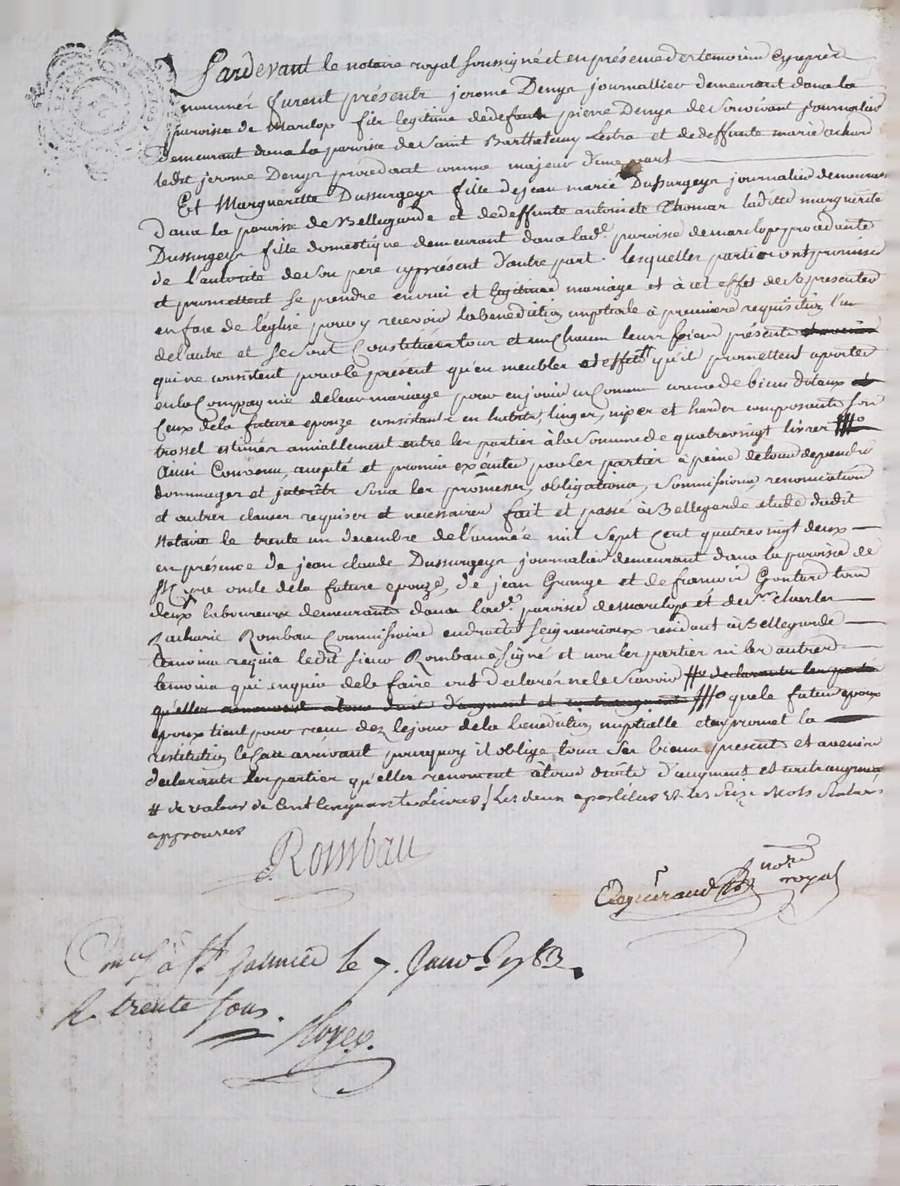 Pardevant le notaire royal soussigné et en presence des temoins cy après
nommés furent présents jerome Denys journallier demeurant dans la
paroisse de Marclop fils legitime de defunt pierre Denys de son vivant journalier
demeurant dans la paroisse de Saint Barthelemy Lestra et de deffunte marie achard
ledit jerome Denys procedant comme majeur d'une part
Et Margueritte Dussurgeys fille de jean marie Dussurgeys journalier demeurant
dans la paroisse de Bellegarde et de deffunte antoinete Thomas laditte marguerite
Dussurgeys fille domestique demeurant dans lad.e paroisse de marclop procedante
de l'autorité de son pere cy présent d'autre part. lesquelles parties ont promis
et promettent se prendre en vrai et legitime mariage et à cet effet de se presenter
en face de l'église pour y recevoir la benediction nuptiale à premiere requisition l'un
de l'autre et se sont Constitués tous et un chacun leurs biens présents
qui ne consistent pour le present qu'en meubles et effets qu'il promettent aporter
en la Compagnie de leur mariage pour en jouir en Commun comme de biens dotaux et
Ceux de la future epouze consistants en habits, linges, nipes et hardes composants son
trossel estimés amiallement entre les parties à la somme de quatre vingt livres
Ainsi Convenu, accepté et promis executer par les parties à peine de tous depends
dommages et interêts sous les promesses, obligations, soumissions renonciations
et autres clauses requises et necessaires fait et passé à Bellegarde étude dudit
notaire le trente un decembre de l'année mil sept cent quatre vingt deux
en présence de jean claude Dussurgeys journalier demeurant dans la paroisse de
St Cyre oncle de la future epouze, de jean Grange et de francois Gontard tous
deux laboureurs demeurants dans lad.e paroisse de marclope et de s.r charles
Zacharie Rombau Commissaire en droits seigneuriaux residant à Bellegarde
temoins requis ledit sieur Rombau a signé et non les parties ni les autres
temoins qui enquis de le faire ont declaré ne le scavoir declarants les parties
qu'elles renoncent à tous droit d'augment et contraugment que le futur epoux
epoux tient pour recu dez le jour de la benediction nuptialle et en promet la
restitution le cas arrivant pourquoy il oblige tous ses biens present et avenir
declarants les parties qu'elles renoncent à tous droits d'augment et contraugment
# de valeur de Cent Cinquante Livres / Les deux apostilles et les mots rature
approuvées
Rombau
notre
royal
Controllé à St Galmier le 7. Janv. 1783.
R. trente sous.